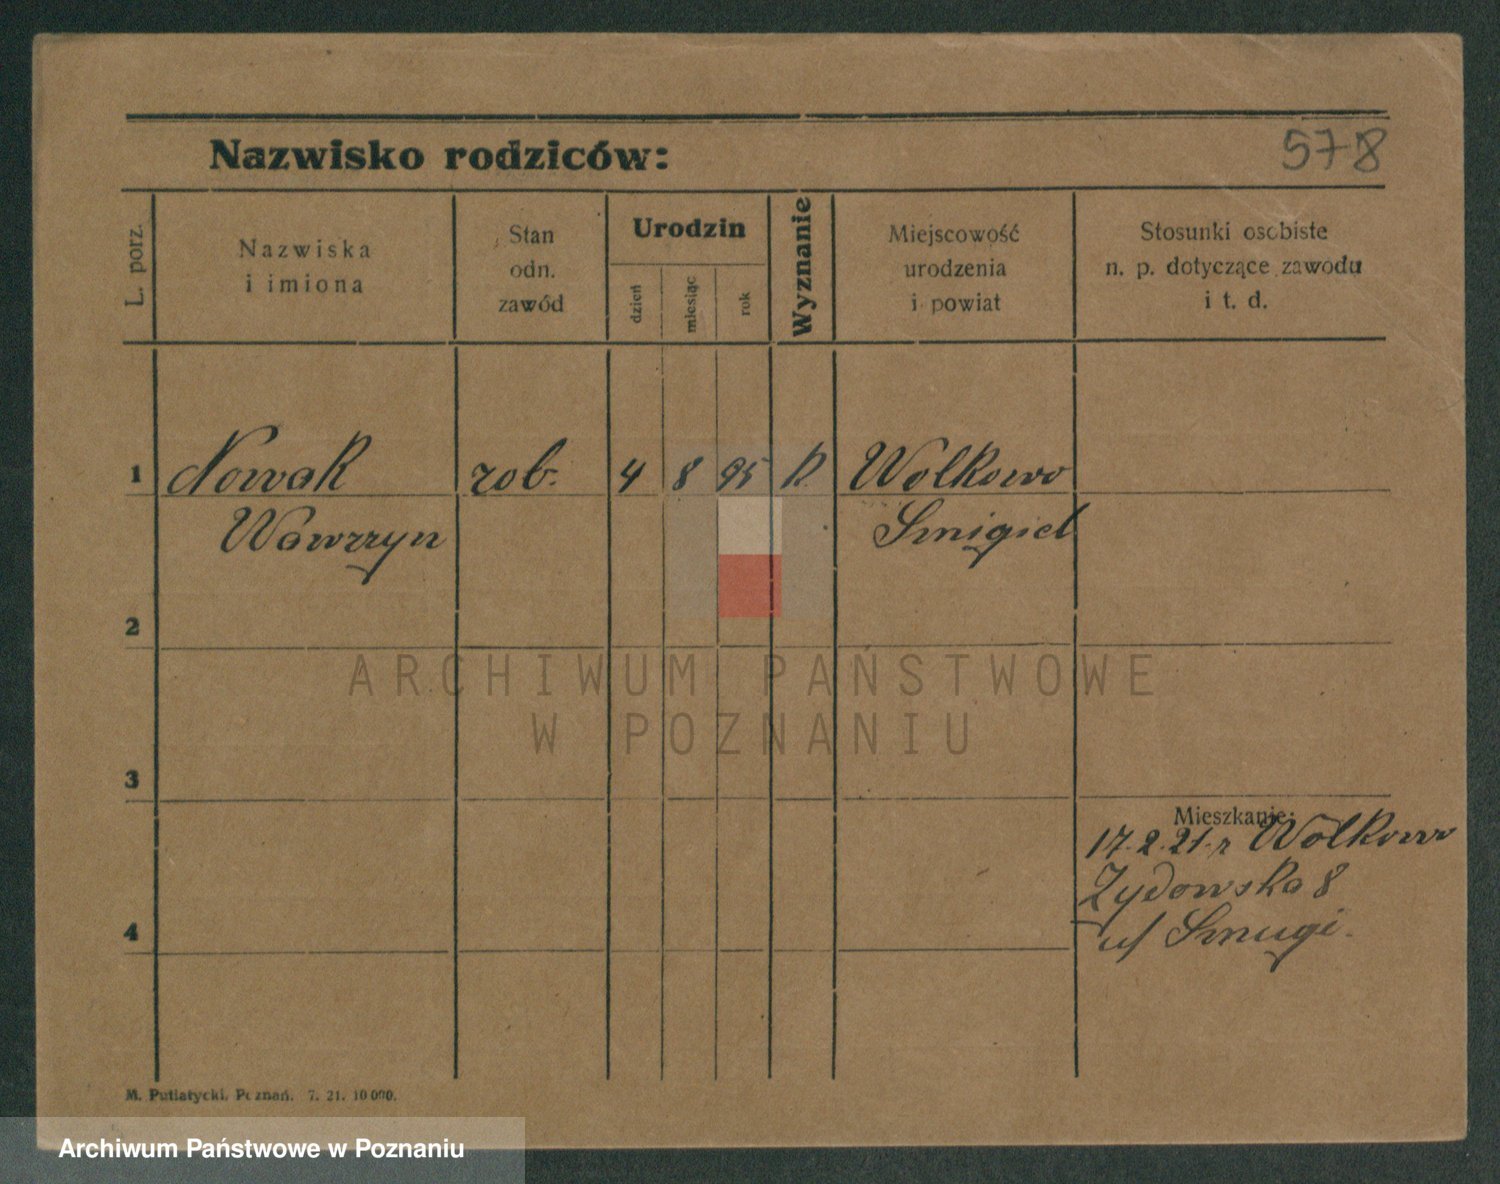 Nazwisko rodziców:
578
L. porz.
Nazwiska
i imiona
Stan
odn.
zawód
Urodzin
dzień
miesiąc
rok
Wyznanie
Miejscowość
urodzenia
i powiat
Stosunki osobiste
n. p. dotyczące zawodu
i t. d.
1 Nowak rob. 4 8 95 k. Wolkowo
Wawrzyn Smigiel
2
ARCHIWUM PAŃSTWOWE
W POZNANIU
3
Mieszkanie:
17.2.21.z Wolkowo
Żydowska 8
4
u/ Smugi.
M. Putiatycki, Poznań. 7. 21. 10 000.
Archiwum Państwowe w Poznaniu